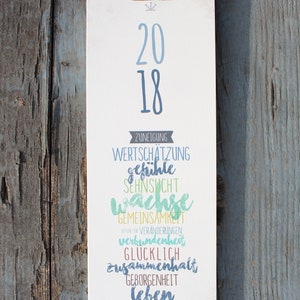 20
18
ZUNEIGUNG
WERTSCHÄTZUNG
gefühle
SEHNSUCHT
wachse
GEMEINSAMKEIT
VERÄNDERUNGEN
verbundenheit
GLÜCKLICH
zusammenhalt
GEBORGENHEIT
leben